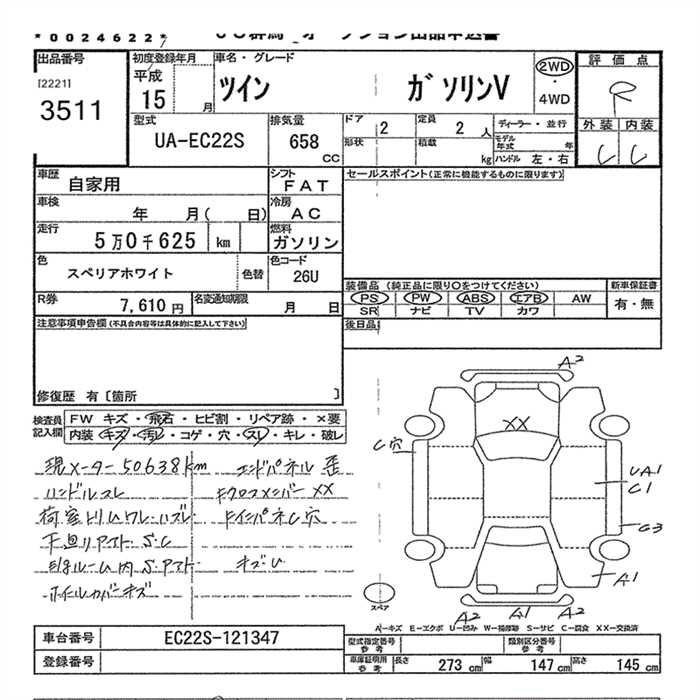 *0024622*
JU群馬 オークション出品申込書
出品番号
[2221]
3511
初度登録年月
平成
15 月
車名・グレード
ツイン ガソリンV
2WD
・
4WD
評価点
R
外装 内装
型式
UA-EC22S
排気量
658
CC
ドア
2
定員
2 人
形状
積載
kg
ディーラー・並行
モデル年式 年
ハンドル 左・右
車歴
自家用
シフト
FAT
セールスポイント(正常に機能するものに限ります)
車検
年 月( 日)
冷房
AC
走行
5万0千625 km
燃料
ガソリン
色
スペリアホワイト
色替
色コード
26U
装備品 (純正品に限り○をつけてください)
PS PW ABS エアB AW
SR ナビ TV カワ
新車保証書
有・無
R券
7,610 円
名変通知期限
月 日
後日品
注意事項申告欄 (不具合内容等は具体的に記入して下さい)
修復歴 有〔箇所 〕
検査員記入欄
FW キズ・飛石・ヒビ割・リペア跡・×要
内装 キズ・汚レ・コゲ・穴・スレ・キレ・破レ
現メーター50638km
ハンドルスレ
荷室トリムワレ・ハズレ
下廻りアストS.C
ホイルカバーキズ
エンドパネル歪
キクロスメンバーXX
キズU
A2
XX
C穴
UA1
C1
G3
A1
A2
A1
A2
スペア
A-キズ E-エクボ U-凹み W-補修跡 S-サビ C-腐食 XX-交換済
車台番号
EC22S-121347
登録番号
型式指定番号
参考
類別区分番号
参考
車庫証明用
参考
長さ 273 cm
幅 147 cm
高さ 145 cm